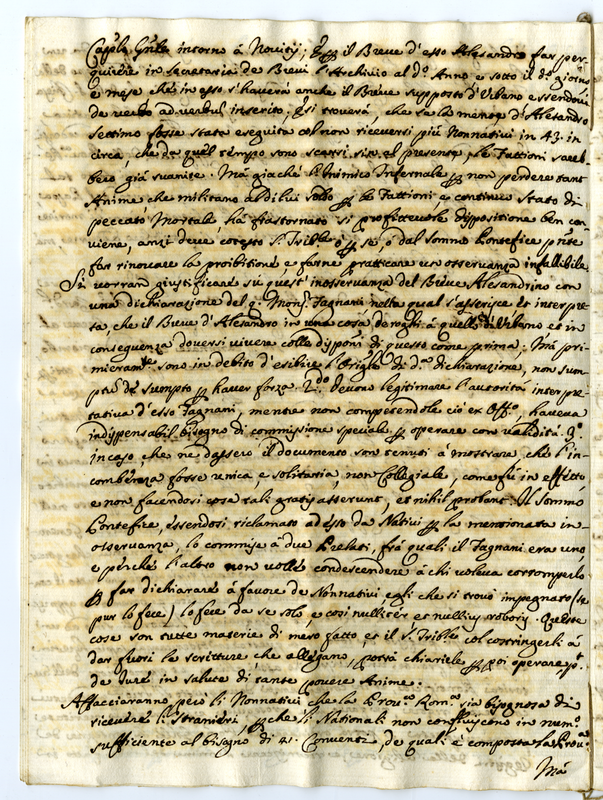 Cap.lo Gn̄le intorno á Novitij; et il Breve d'esso Alesandro far per-
quirere in Secretaria de Brevi l'Archivio al d.o Anno e sotto il d.o giorno
e mese ché in esso s'haverà anche il Breve supposto d'Urbano essendovi
de verbo ad verbum inserito; et si troverá, che se la mente d'Alesandro
settimo fosse stata eseguita col non riceversi piú Nonnativi in 43. in
circa, che da quel tempo sono scorsi sin al presente, le Fattioni sareb-
bero giá svanite. Má giaché l'Inimico Infernale per non perdere tant'
Anime che militano al di lui soldo per le Fattioni e continuo stato di
peccato Mortale, há frastornato si profittevole dispositione ben con-
viene, anzi deve cotesto S. Trib.le ò per sé, o dal sommo Pontefice p̄nte
far rinovare la proibitione, e farne pratticare un osservanza infallibile
Si vorran giustificare sú quest'inosservanza del Breve Alesandrino con
una dichiarazione del q. Mons.r Fagnani nella qual s'asserisce et interpre-
ta, che il Breve d'Alesandro in una cosa deroghi á quello d'Urbano et in
conseguenza doversi vivere colle disponi di questo come prima; Má pri-
mieram.te sono in debito d'esibire l'Orig.le di d.a dichiarazione, non sum-
ptu de sumpto per haver forza 2.do Devono legitimare l'autoritá interpre-
tativa d'esso Fagnani, mentre non competendole ció ex Off.o, haveva
indispensabil bisogno di commissione speciale per operare con validitá. 3.o
in caso, che ne dassero il documento son tenuti á mostrare, ché l'in-
combenza fosse unica, e solitaria, non Collegiale, come fú in effetto
e non facendosi cosa tali gratis asserunt, et nihil probant. Il Sommo
Pontefice, essendosi riclamato ad esso da Nativi per la mentionata in-
osservanza, lo commise á due Prelati, frá quali il Fagnani era uno
e perché l'altro non volle condescendere á chi voleva corromperlo
per far dichiarare á favore de Nonnativi egli che si trovó impegnato (se
pur lo fece) lo fece da se solo, e cosi nulliter et nullius roboris. Queste
cose son tutte materie di mero fatto, et il S. Trib.le col costringerli á
dar fuori le scritture, che allegano, potrà chiarirle per poi operare p.t
de Jure in salute di tante povere Anime.
Affacciaranno peró li Nonnativi che la Prov.a Rom.a sia bisognosa di
ricevere li stranieri, per che li Nationali non confluiscono in num.o
sufficiente al bisogno di 41. Conventi, de quali é composta la Prov.a
Má